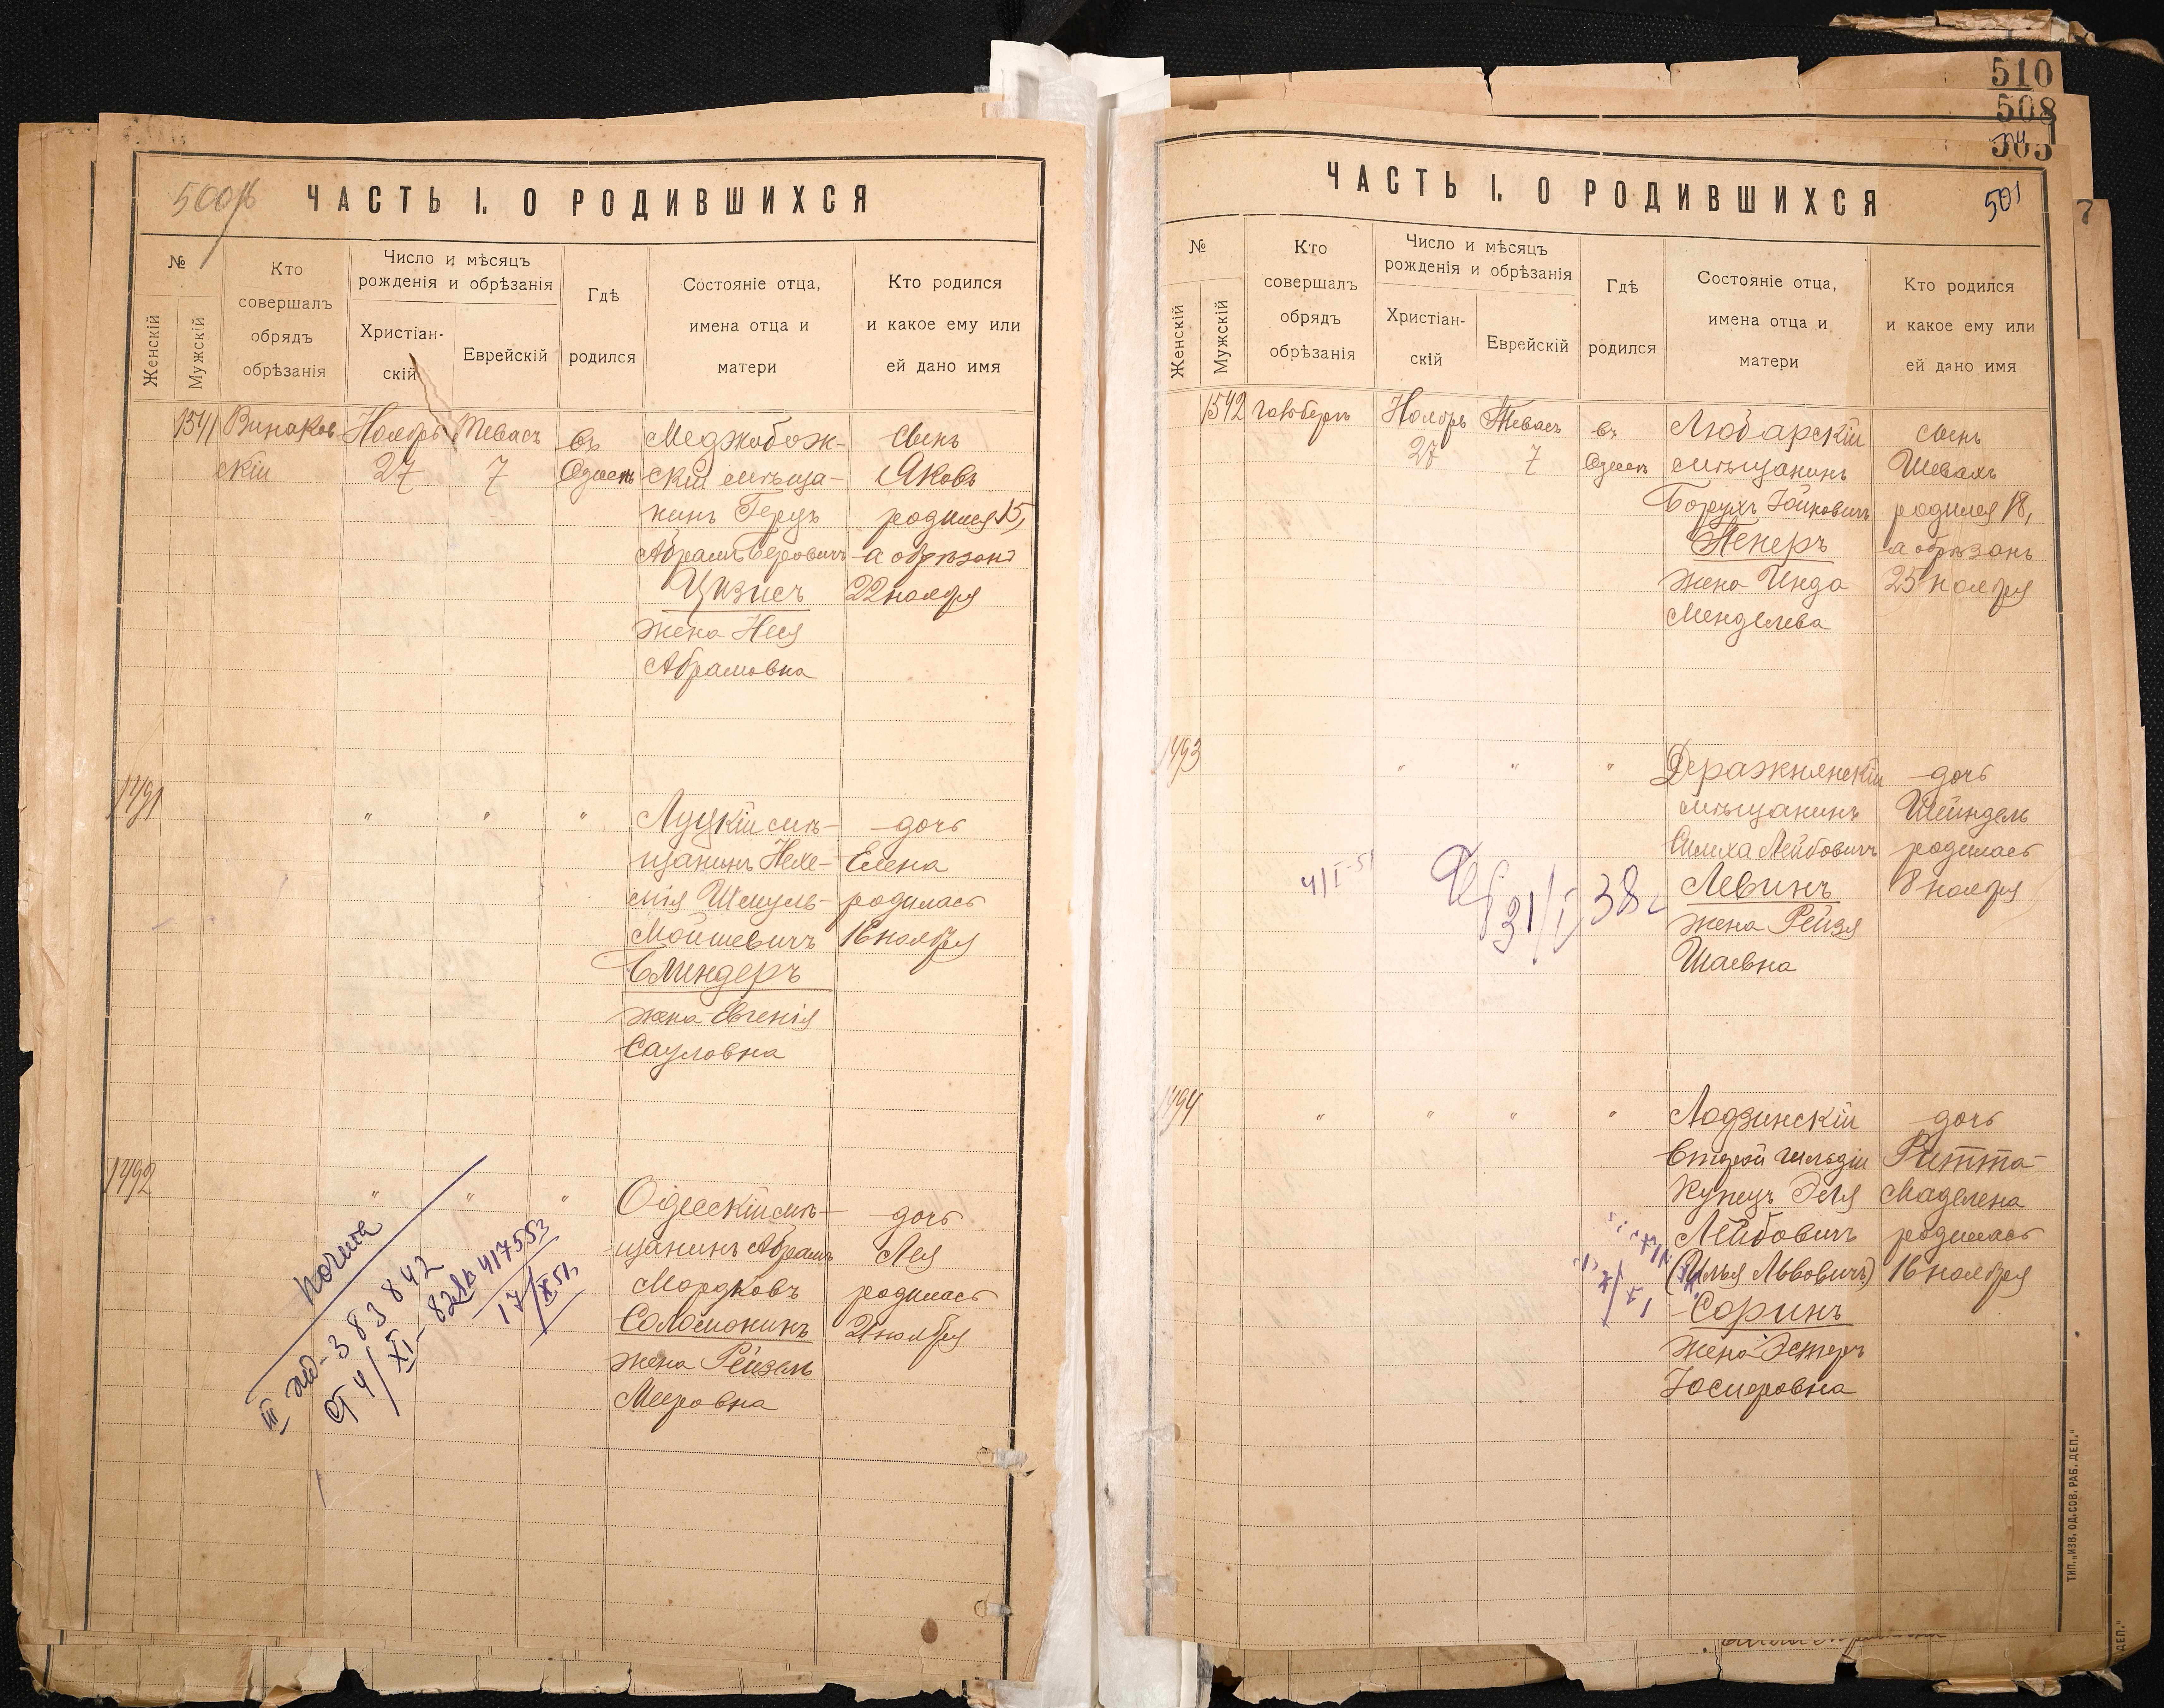 500об
ЧАСТЬ I. О РОДИВШИХСЯ
№
Женскій
Мужскій
Кто
совершалъ
обрядъ
обрѣзанія
Число и мѣсяцъ
рожденія и обрѣзанія
Христіан-
скій
Еврейскій
Гдѣ
родился
Состояніе отца,
имена отца и
матери
Кто родился
и какое ему или
ей дано имя
1541
Винаков
скій
Ноябрь
27
Тевасъ
7
въ
Одессѣ
Меджибож-
скій мѣща-
нинъ Герцъ
Абрамъ Беровичъ
Цизисъ
жена Нися
Абрамовна
Сынъ
Яковъ
родился 15,
а обрѣзанъ
22 ноября
1491
" " "
Луцкій мѣ-
щанинъ Нехе-
мія Шмуль-
Мойшевичъ
Блиндеръ
жена Евгенія
Сауловна
дочь
Елена
родилась
16 ноября
1492
" " "
Одесскій мѣ-
щанинъ Абрамъ
Мордковъ
Соломонинъ
жена Рейзель
Мееровна
дочь
Лея
родилась
21 ноября
III
383842
от 4/XI-
417553
17/XI 51
510
508
505
501
7
ЧАСТЬ I. О РОДИВШИХСЯ
№
Женскій
Мужскій
Кто
совершалъ
обрядъ
обрѣзанія
Число и мѣсяцъ
рожденія и обрѣзанія
Христіан-
скій
Еврейскій
Гдѣ
родился
Состояніе отца,
имена отца и
матери
Кто родился
и какое ему или
ей дано имя
1542
Гольбергъ
Ноябрь
27
Тевасъ
7
въ
Одессѣ
Любарскій
мѣщанинъ
Борухъ Іойновичъ
Пенеръ
жена Инда
Менделева
сынъ
Шевахъ
родился 18,
а обрѣзанъ
25 ноября
1493
" " "
Деражнянскій
мѣщанинъ
Симха Лейбовичъ
Левинъ
жена Рейзя
Шаевна
дочь
Шейндель
родилась
8 ноября
4/I-51
31/I 38 г
1494
" " " "
Лодзинскій
второй гильдіи
купецъ Эля
Лейбовичъ
(Илья Львовичъ)
Соринъ
жена Эстеръ
Іосифовна
дочь
Ритта-
Маделена
родилась
16 ноября
ТИП. „ИЗВ. ОД. СОВ. РАБ. ДЕП."
ДЕП."